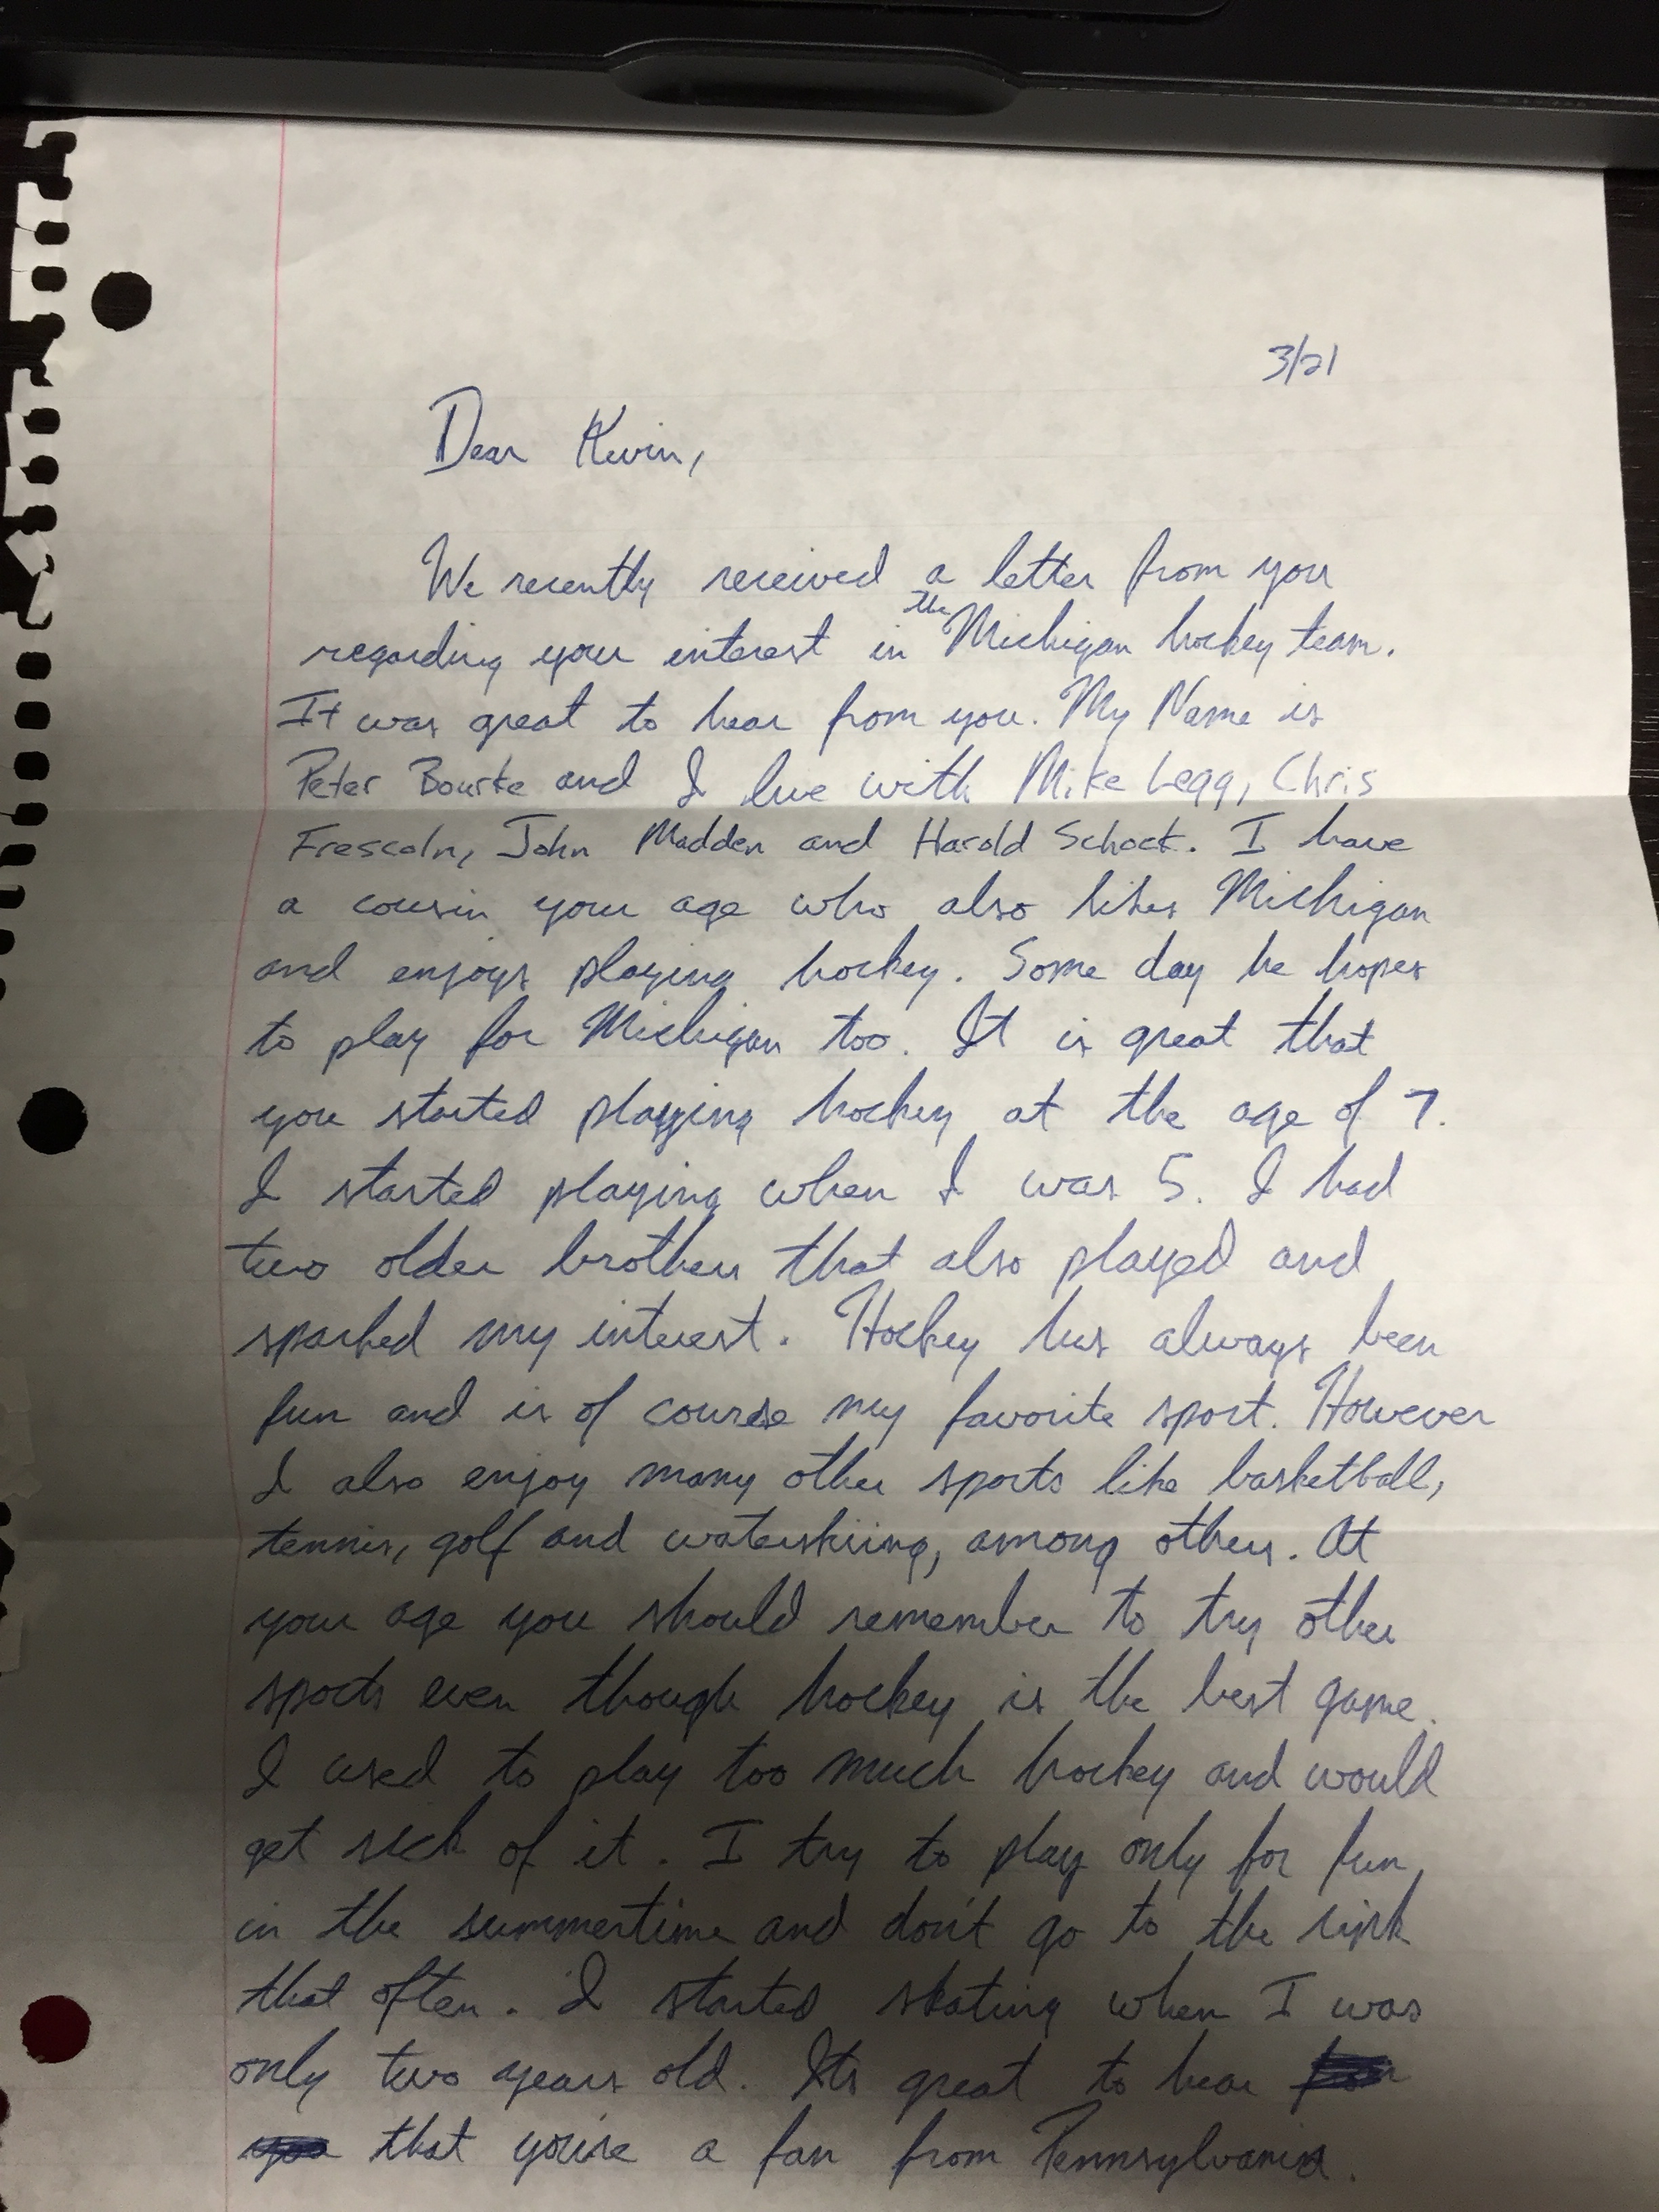 3/21
Dear Kevin,
We recently received a letter from you
regarding your interest in the Michigan hockey team.
It was great to hear from you. My Name is
Peter Bourke and I live with Mike Legg, Chris
Frescoln, John Madden and Harold Schock. I have
a cousin your age who also likes Michigan
and enjoys playing hockey. Some day he hopes
to play for Michigan too. It is great that
you started playing hockey at the age of 7.
I started playing when I was 5. I had
two older brothers that also played and
sparked my interest. Hockey has always been
fun and is of course my favorite sport. However
I also enjoy many other sports like basketball,
tennis, golf and waterskiing, among others. At
your age you should remember to try other
sports even though hockey is the best game.
I used to play too much hockey and would
get sick of it. I try to play only for fun
in the summertime and don't go to the rink
that often. I started skating when I was
only two years old. Its great to hear
that you're a fan from Pennsylvania.